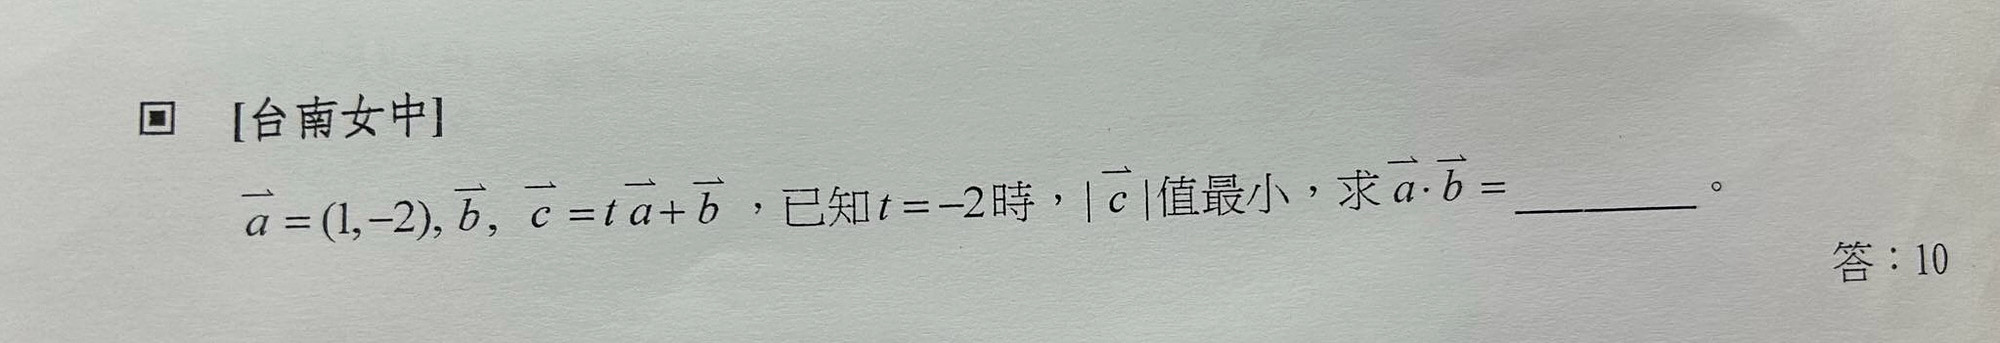 ▣ [台南女中]
a⃗ = (1,−2), b⃗, c⃗ = t a⃗ + b⃗ ,已知 t = −2 時,| c⃗ | 值最小,求 a⃗ · b⃗ = ________。
答:10